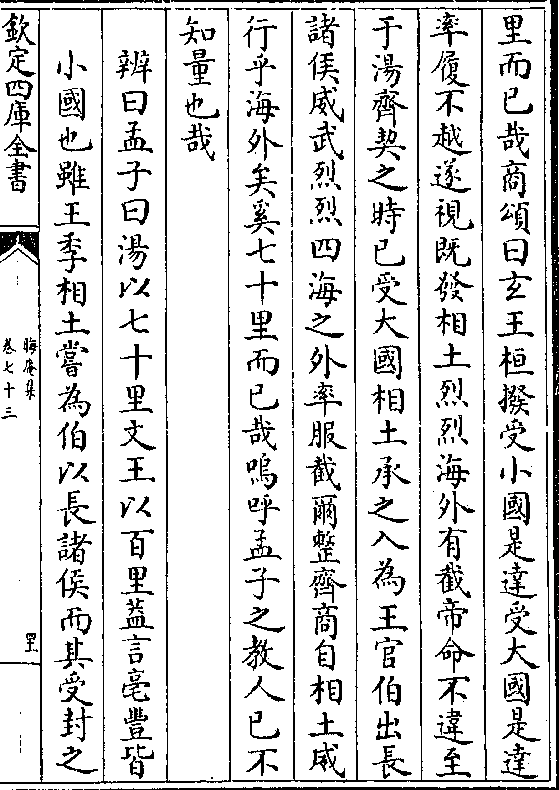 里而已哉商頌曰玄王桓撥受小國是達受大國是達
率履不越遂視既發相土烈烈海外有截帝命不違至
于湯齊契之時已受大國相土承之入為王官伯出長
諸侯威武烈烈四海之外率服截爾整齊商自相土威
行乎海外矣奚七十里而已哉嗚呼孟子之教人已不
知量也哉
辨曰孟子曰湯以七十里文王以百里蓋言亳豐皆
小國也雖王季相土嘗為伯以長諸侯而其受封之
欽定四庫全書
晦庵集
卷七十三
罒